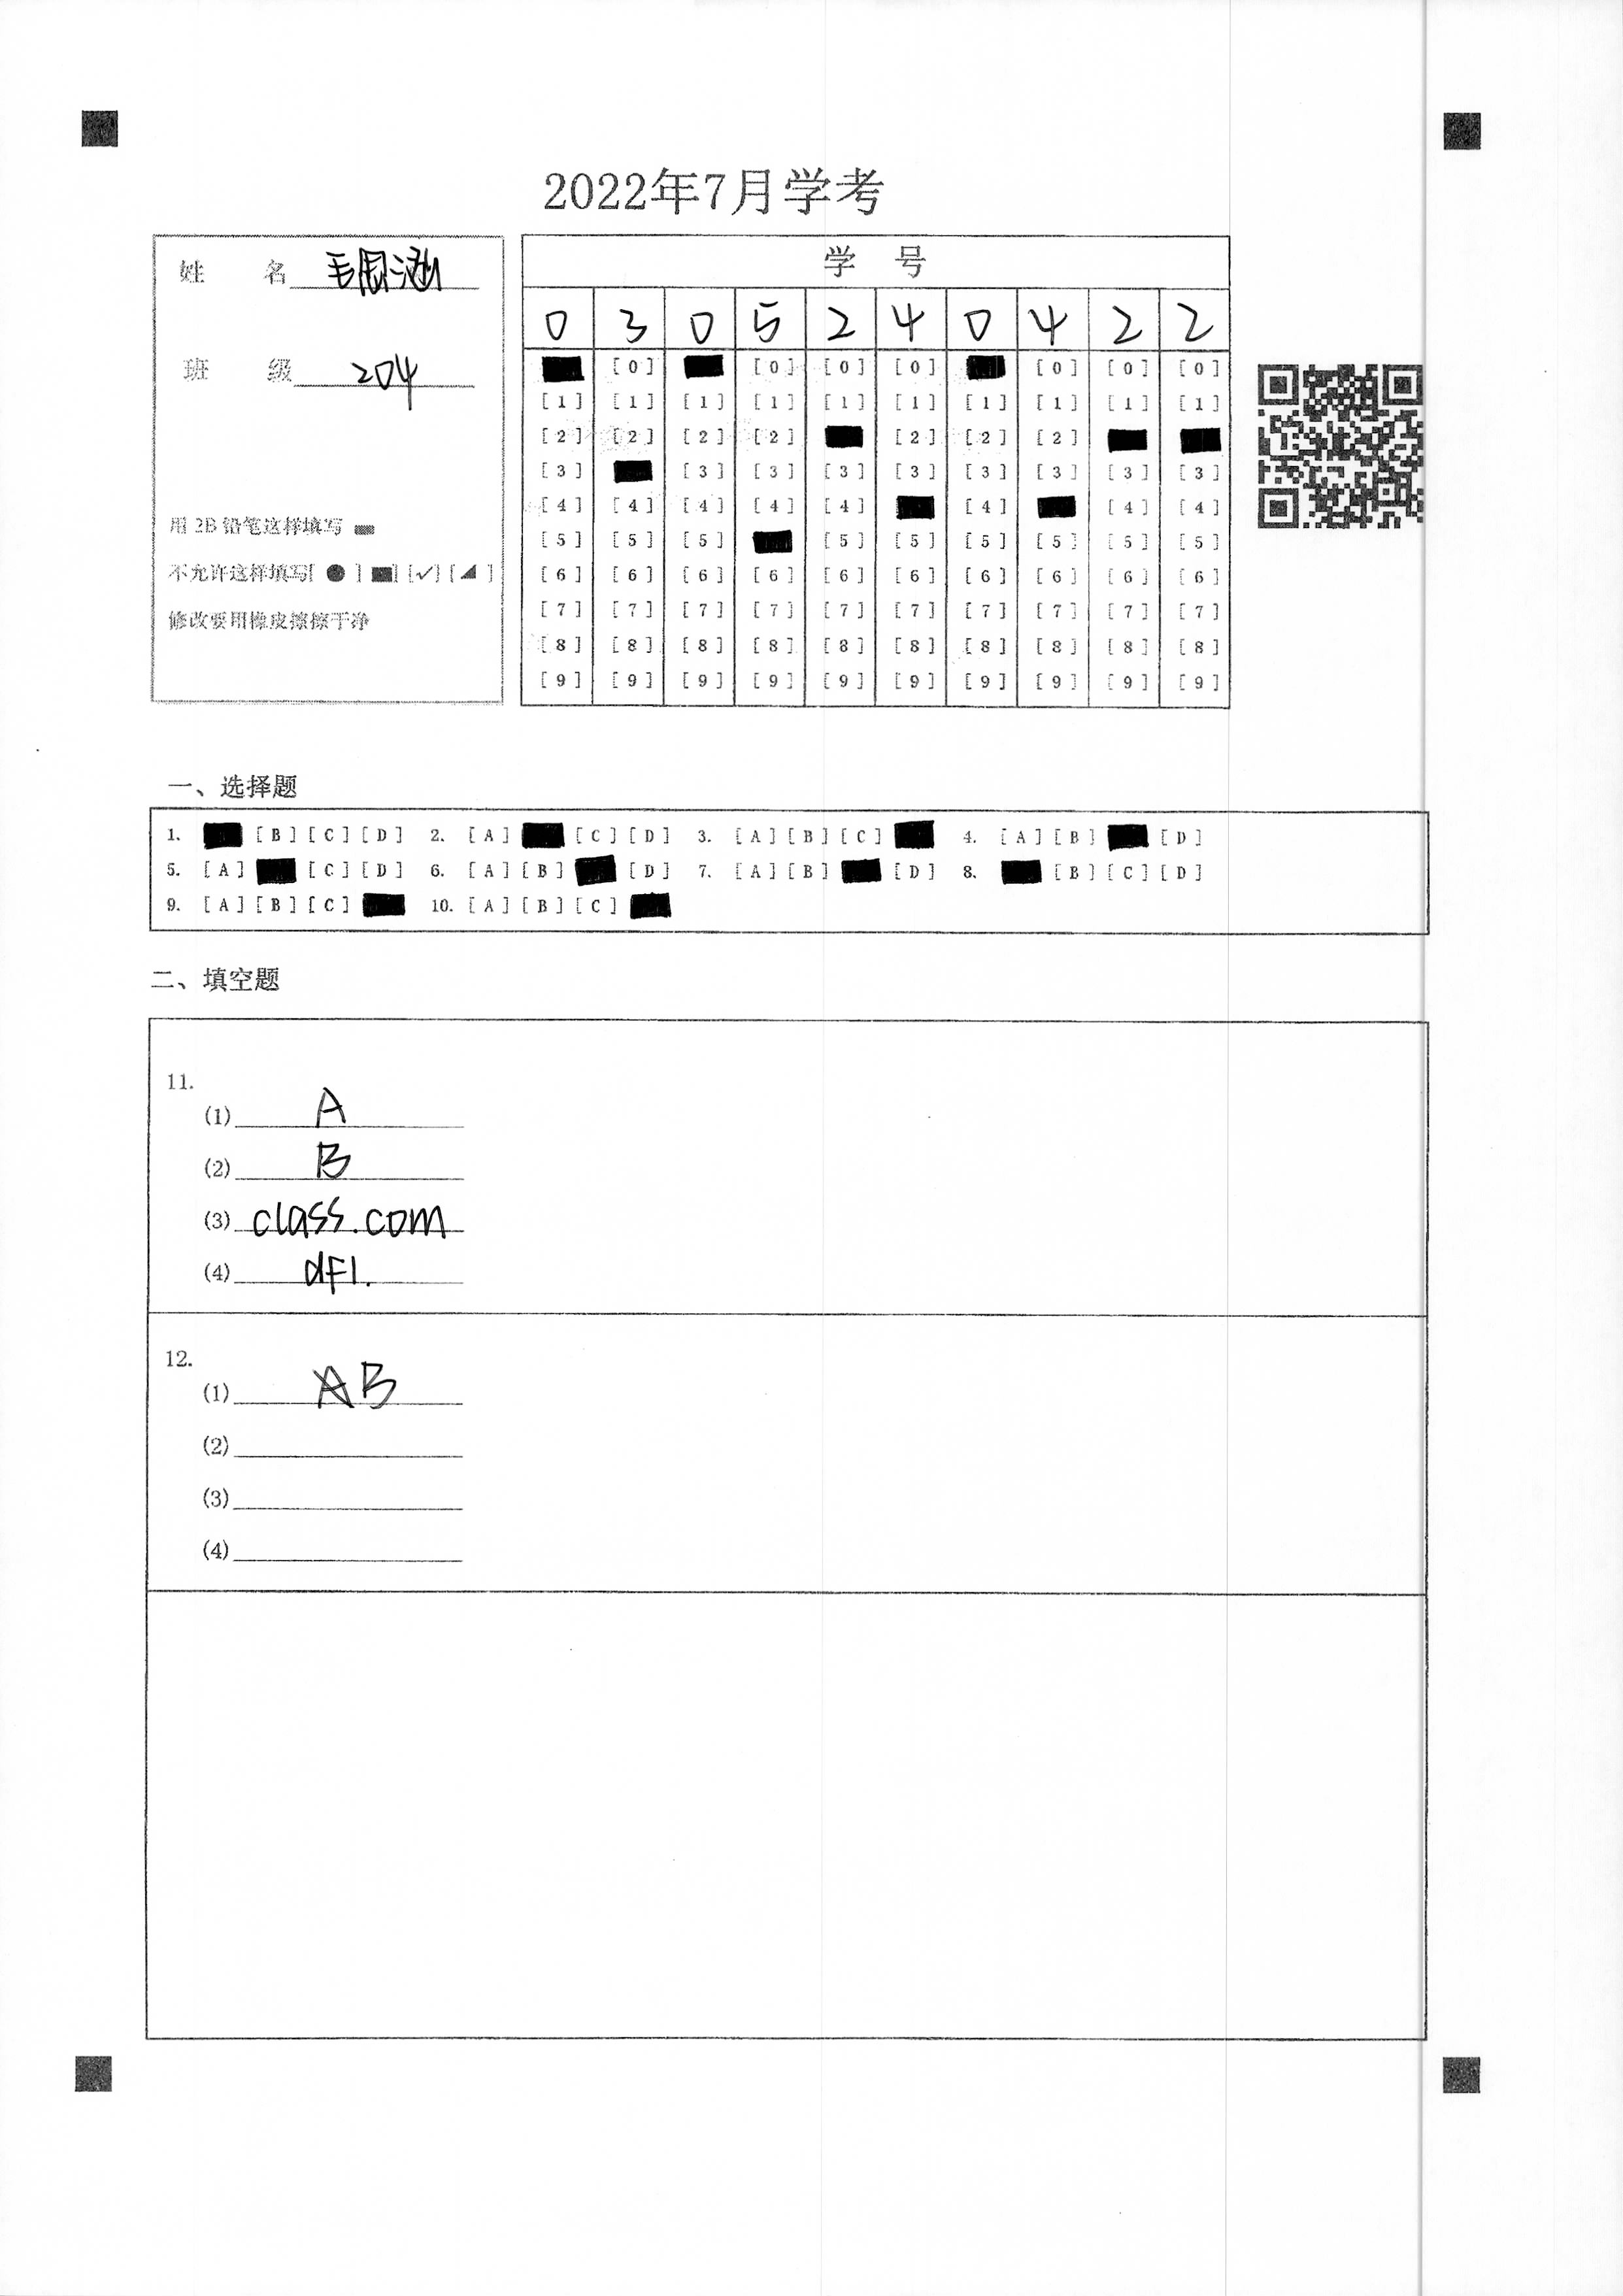 2022年7月学考
姓 名 毛周涵
班 级 204
用 2B 铅笔这样填写
不允许这样填写[ ● ] [■] [✓] [◢ ]
修改要用橡皮擦擦干净
学 号
0 3 0 5 2 4 0 4 2 2
[0] [0] [0] [0] [0] [0] [0]
[1] [1] [1] [1] [1] [1] [1] [1] [1] [1]
[2] [2] [2] [2] [2] [2] [2]
[3] [3] [3] [3] [3] [3] [3] [3] [3]
[4] [4] [4] [4] [4] [4] [4] [4]
[5] [5] [5] [5] [5] [5] [5] [5] [5]
[6] [6] [6] [6] [6] [6] [6] [6] [6] [6]
[7] [7] [7] [7] [7] [7] [7] [7] [7] [7]
[8] [8] [8] [8] [8] [8] [8] [8] [8] [8]
[9] [9] [9] [9] [9] [9] [9] [9] [9] [9]
一、选择题
1. [B] [C] [D] 2. [A] [C] [D] 3. [A] [B] [C] 4. [A] [B] [D]
5. [A] [C] [D] 6. [A] [B] [D] 7. [A] [B] [D] 8. [B] [C] [D]
9. [A] [B] [C] 10. [A] [B] [C]
二、填空题
11.
(1) A
(2) B
(3) class.com
(4) df1.
12.
(1) AB
(2)
(3)
(4)